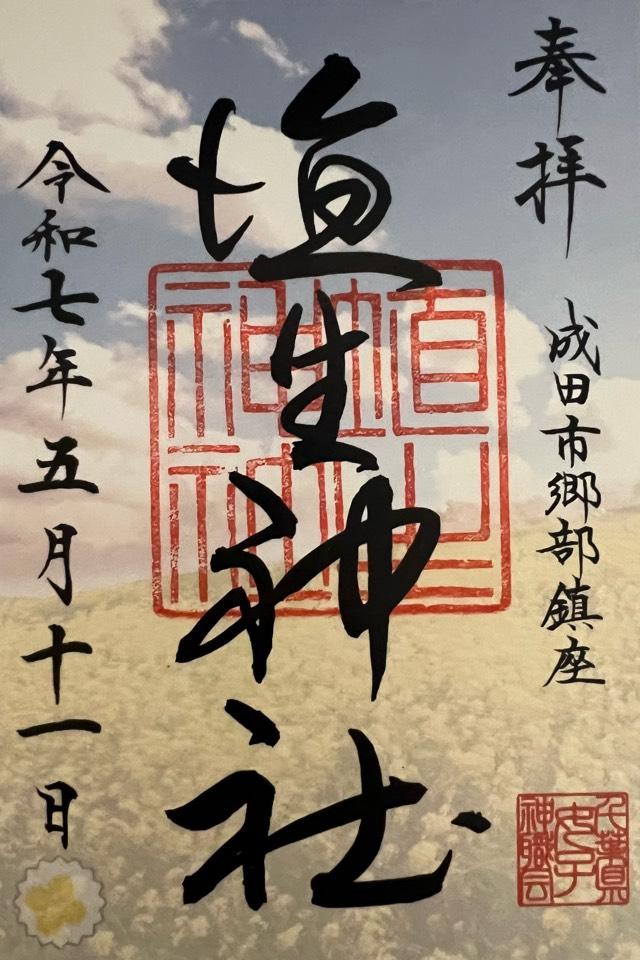 奉拝
成田市郷部鎮座
埴生神社
埴生
神社
令和七年五月十一日
千葉県
女子
神職会